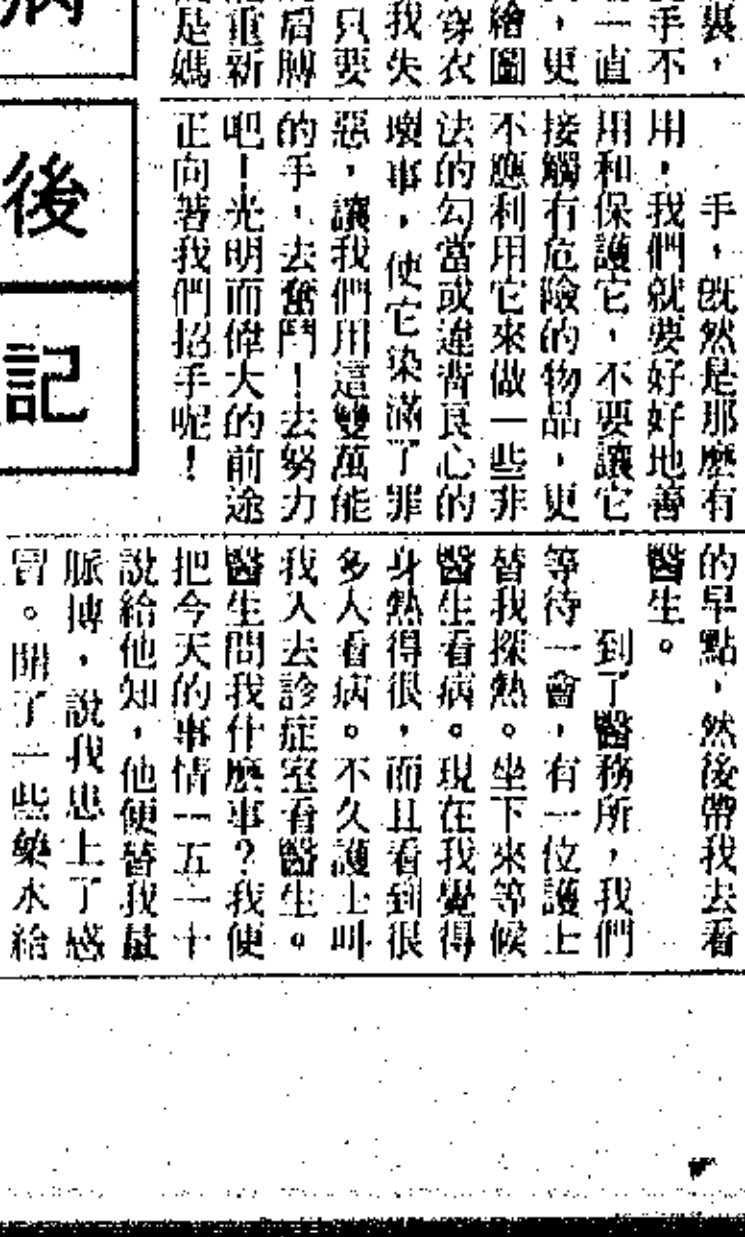 裏，
手不
一直
，更
繪圖
穿衣
我失
只要
肩膊
重新
是媽
手，既然是那麼有
用，我們就要好好地善
用和保護它，不要讓它
接觸有危險的物品，更
不應利用它來做一些非
法的勾當或違背良心的
壞事，使它染滿了罪
惡，讓我們用這雙萬能
的手，去奮鬥！去努力
吧！光明而偉大的前途
正向著我們招手呢！
病
後
記
的早點，然後帶我去看
醫生。
到了醫務所，我們
等待一會，有一位護士
替我探熱。坐下來等候
醫生看病。現在我覺得
身熱得很，而且看到很
多人看病。不久護士叫
我入去診症室看醫生。
醫生問我什麼事？我便
把今天的事情一五一十
說給他知，他便替我量
脈搏，說我患上了感
冒。開了一些藥水給